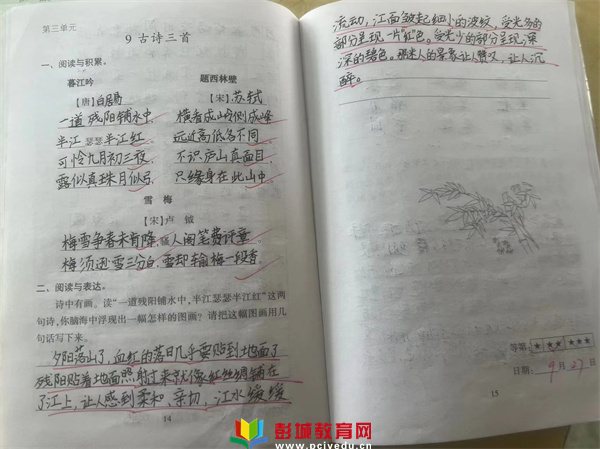 第三单元
9 古诗三首
一、阅读与积累。
暮江吟
[唐]白居易
一道残阳铺水中,
半江瑟瑟半江红
可怜九月初三夜
露似真珠月似弓
题西林壁
[宋]苏轼
横看成岭侧成峰
远近高低各不同
不识庐山真面目
只缘身在此山中
雪 梅
[宋]卢 钺
梅雪争春未肯降,骚人阁笔费评章
梅须逊雪三分白,雪却输梅一段香
二、阅读与表达。
诗中有画。读“一道残阳铺水中,半江瑟瑟半江红”这两
句诗,你脑海中浮现出一幅怎样的图画?请把这幅图画用几
句话写下来。
夕阳落山了,血红的落日几乎要贴到地面了
残阳贴着地面照射过来就像红丝绸铺在
了江上,让人感到柔和、亲切,江水缓缓
14
流动,江面皱起细小的波纹,受光多的
部分呈现一片“红”色。受光少的部分呈现深
深的碧色。那迷人的景象让人赞叹,让人沉
醉。
等第:
日期:9月27日
15
彭城教育网
www.pcjyedu.cn